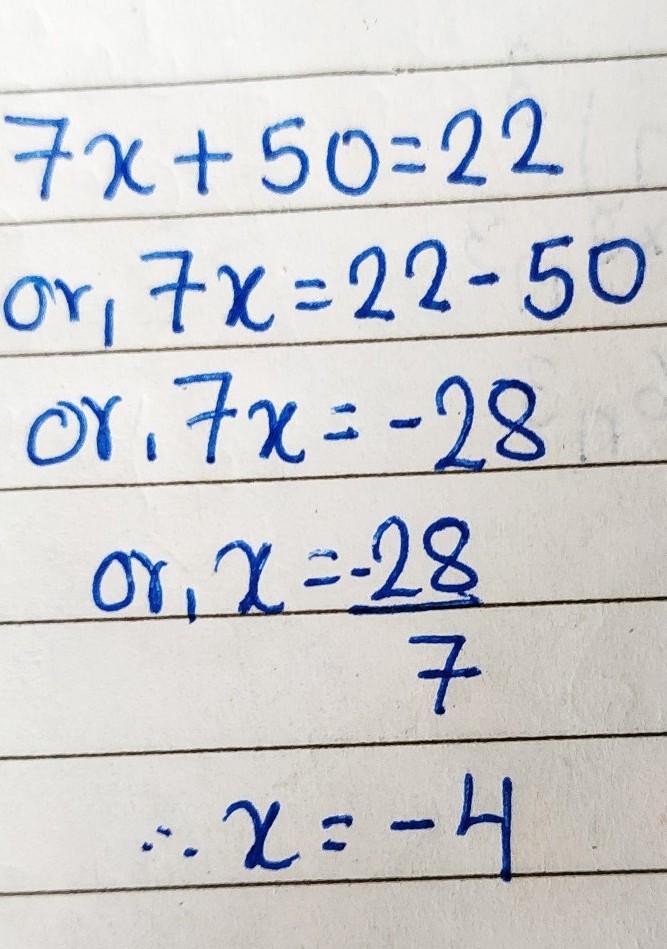 7x + 50 = 22
or, 7x = 22 - 50
or, 7x = -28
or, x = -28
7
∴ x = -4